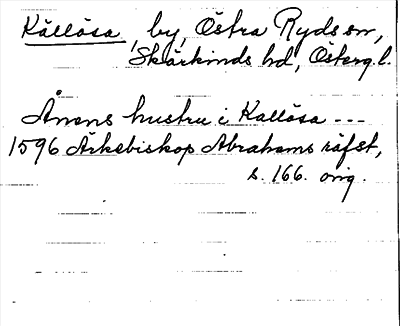 Källösa, by, Östra Ryds sn,
Skärkinds hd, Österg. l.
Ånens hustru i Kallösa ---
1596 Ärkebiskop Abrahams räfst,
s. 166. orig.